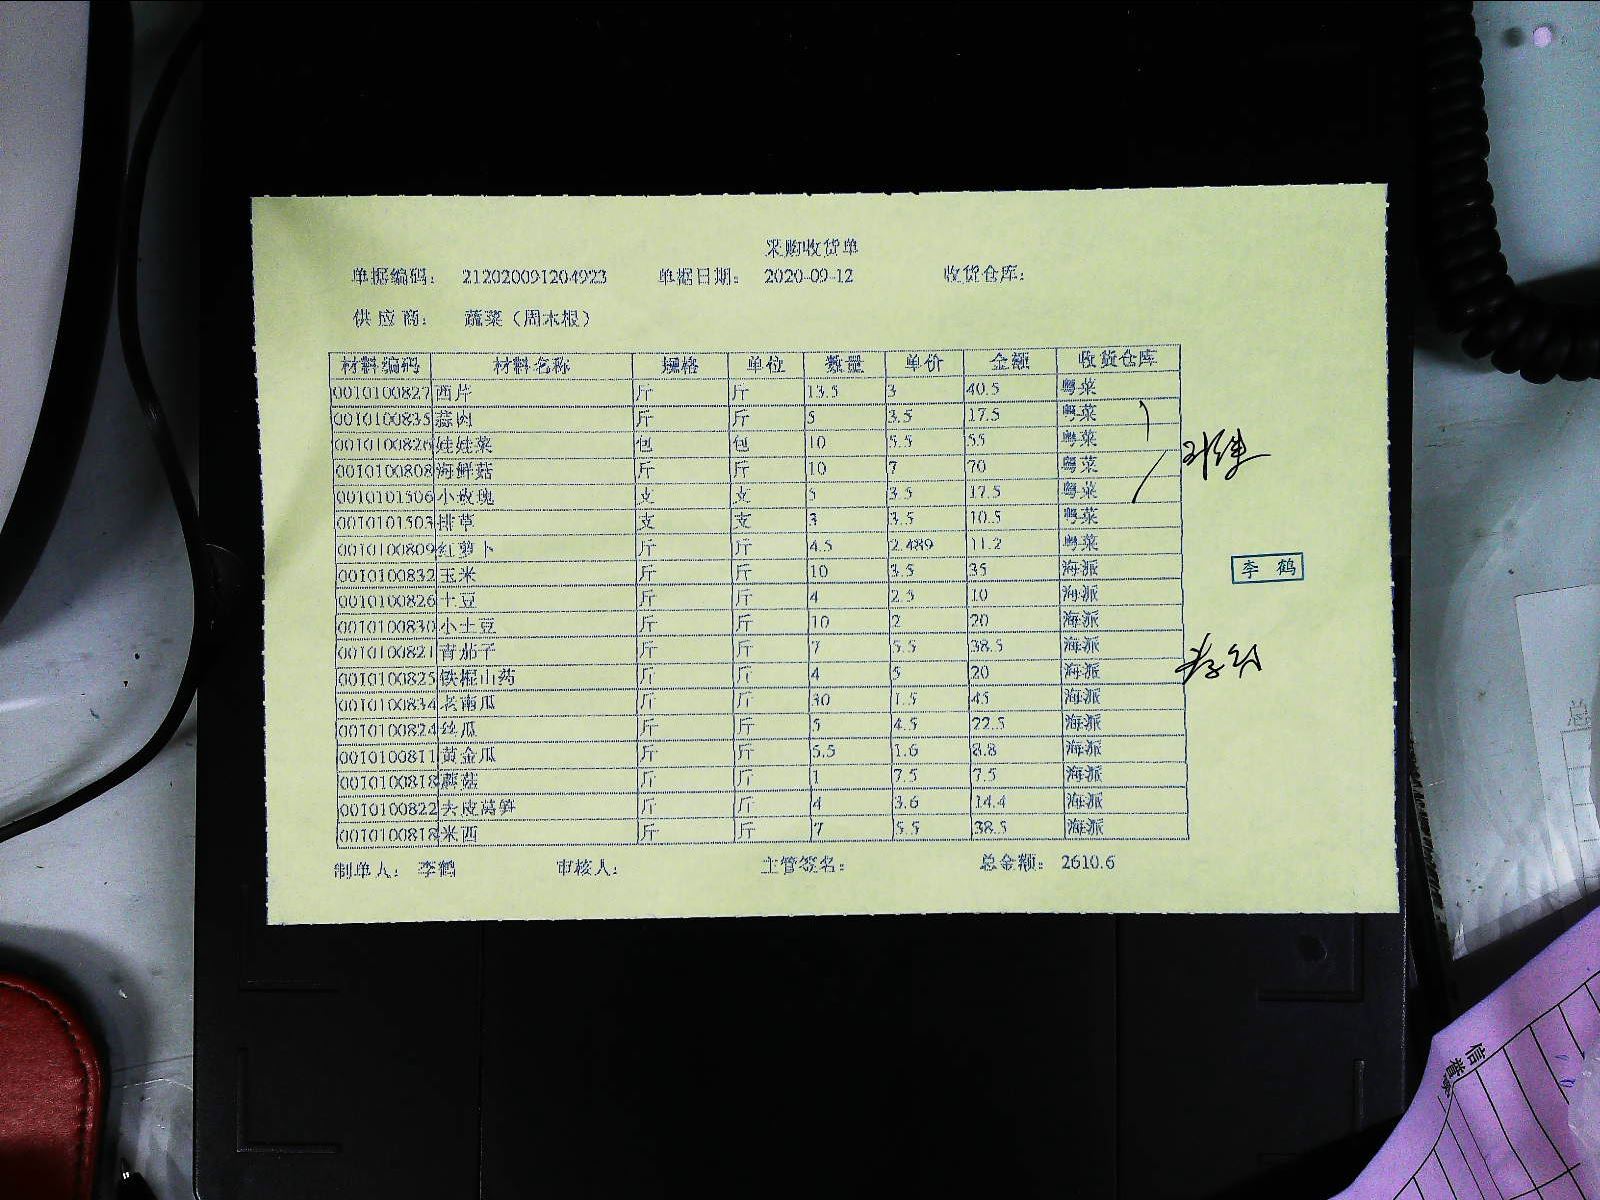 采购收货单
单据编码: 212020091204923 单据日期: 2020-09-12 收货仓库:
供应商: 蔬菜（周木根）
材料编码 材料名称 规格 单位 数量 单价 金额 收货仓库
0010100827 西芹 斤 斤 13.5 3 40.5 粤菜
0010100835 蒜肉 斤 斤 5 3.5 17.5 粤菜
0010100826 娃娃菜 包 包 10 5.5 55 粤菜
0010100808 海鲜菇 斤 斤 10 7 70 粤菜
0010101506 小玫瑰 支 支 5 3.5 17.5 粤菜
0010101503 排草 支 支 3 3.5 10.5 粤菜
0010100809 红萝卜 斤 斤 4.5 2.489 11.2 粤菜
0010100832 玉米 斤 斤 10 3.5 35 海派
0010100826 土豆 斤 斤 4 2.5 10 海派
0010100830 小土豆 斤 斤 10 2 20 海派
0010100821 青茄子 斤 斤 7 5.5 38.5 海派
0010100825 铁棍山药 斤 斤 4 5 20 海派
0010100834 老南瓜 斤 斤 30 1.5 45 海派
0010100824 丝瓜 斤 斤 5 4.5 22.5 海派
0010100811 黄金瓜 斤 斤 5.5 1.6 8.8 海派
0010100818 蘑菇 斤 斤 1 7.5 7.5 海派
0010100822 去皮莴笋 斤 斤 4 3.6 14.4 海派
0010100818 米西 斤 斤 7 5.5 38.5 海派
李鹤
制单人: 李鹤 审核人: 主管签名: 总金额: 2610.6